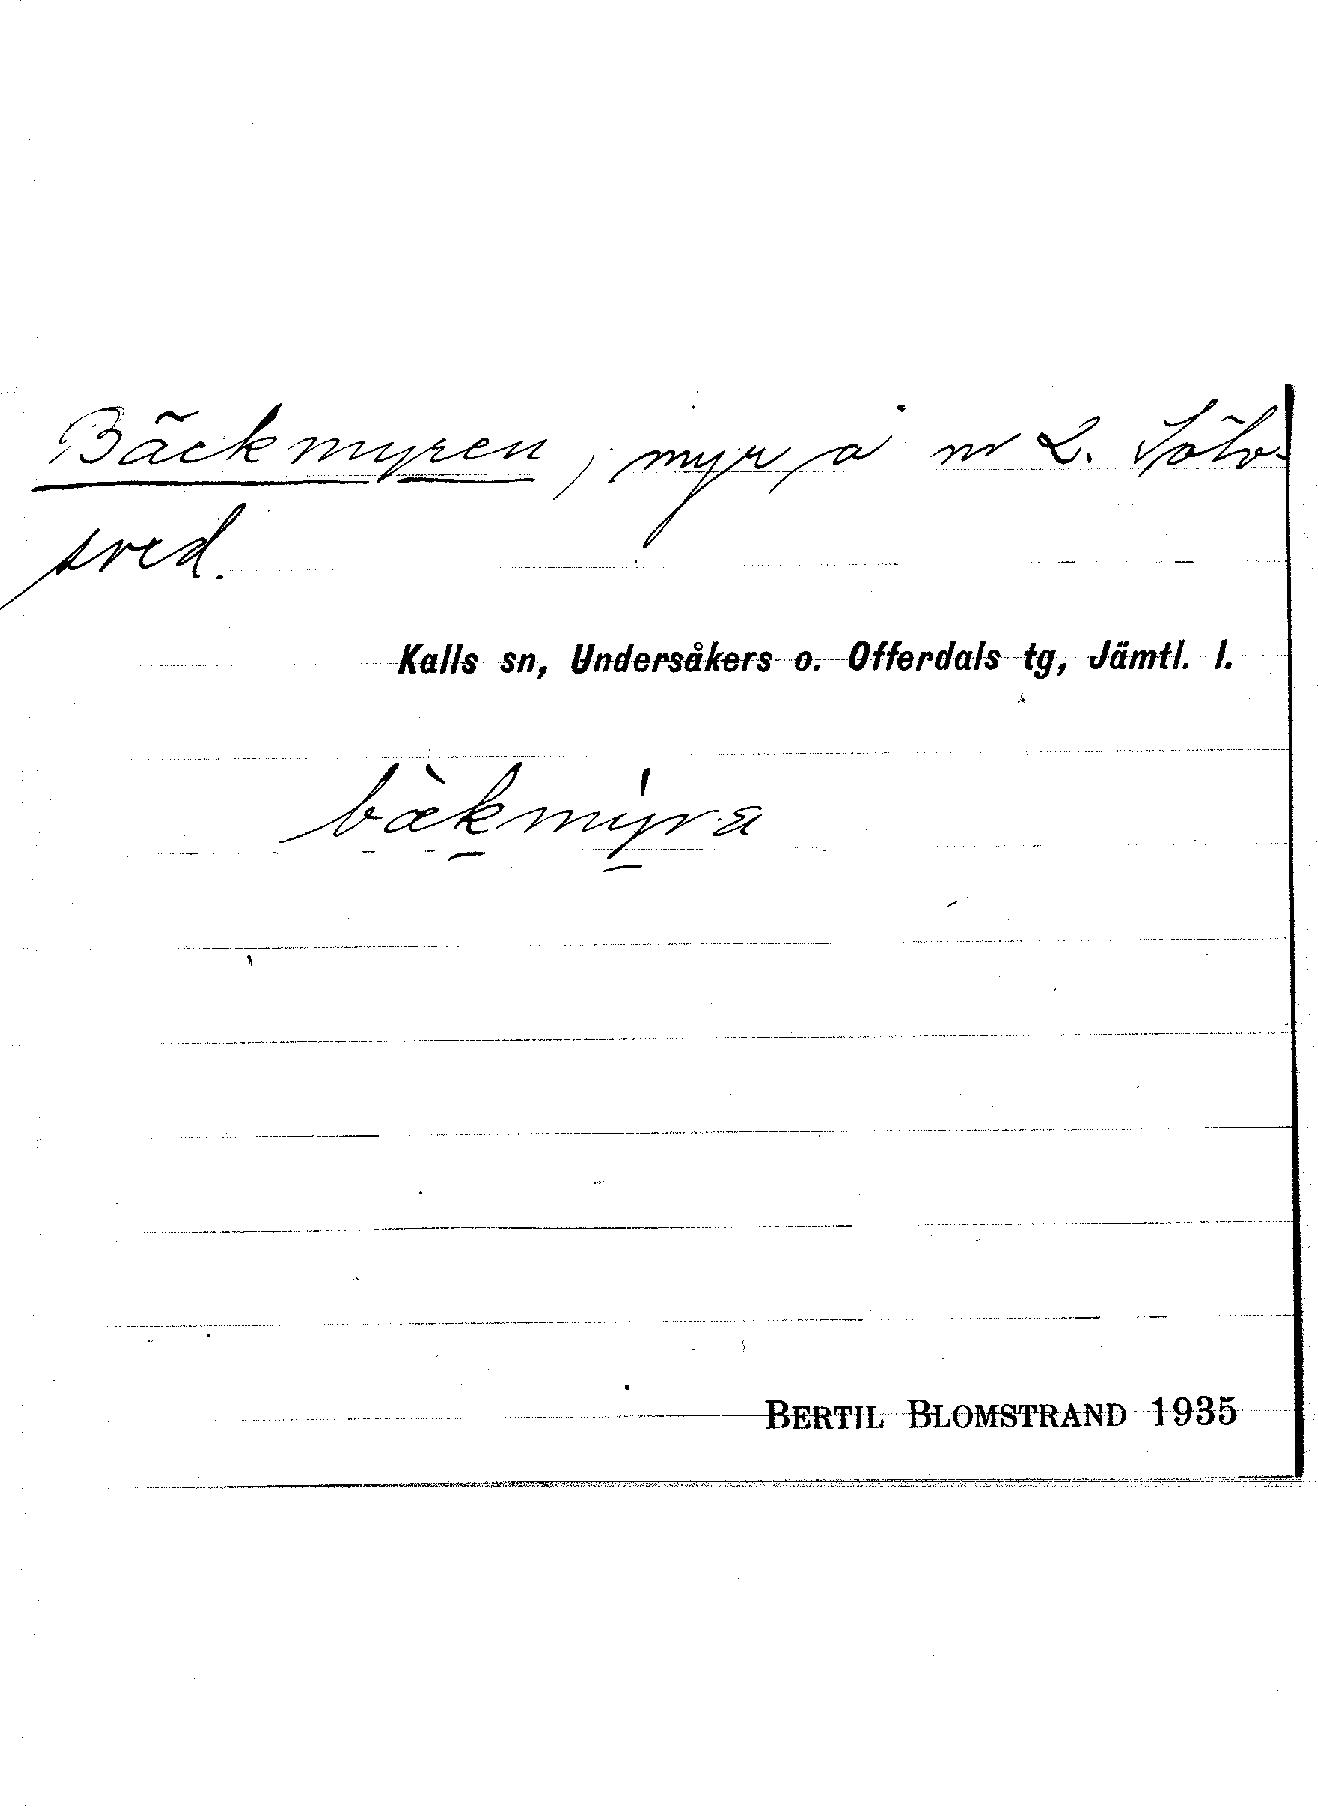 Bäckmyren, myr å nr 2. Sölv-
sved.
Kalls sn, Undersåkers o. Offerdals tg, Jämtl. l.
bækmyra
BERTIL BLOMSTRAND 1935